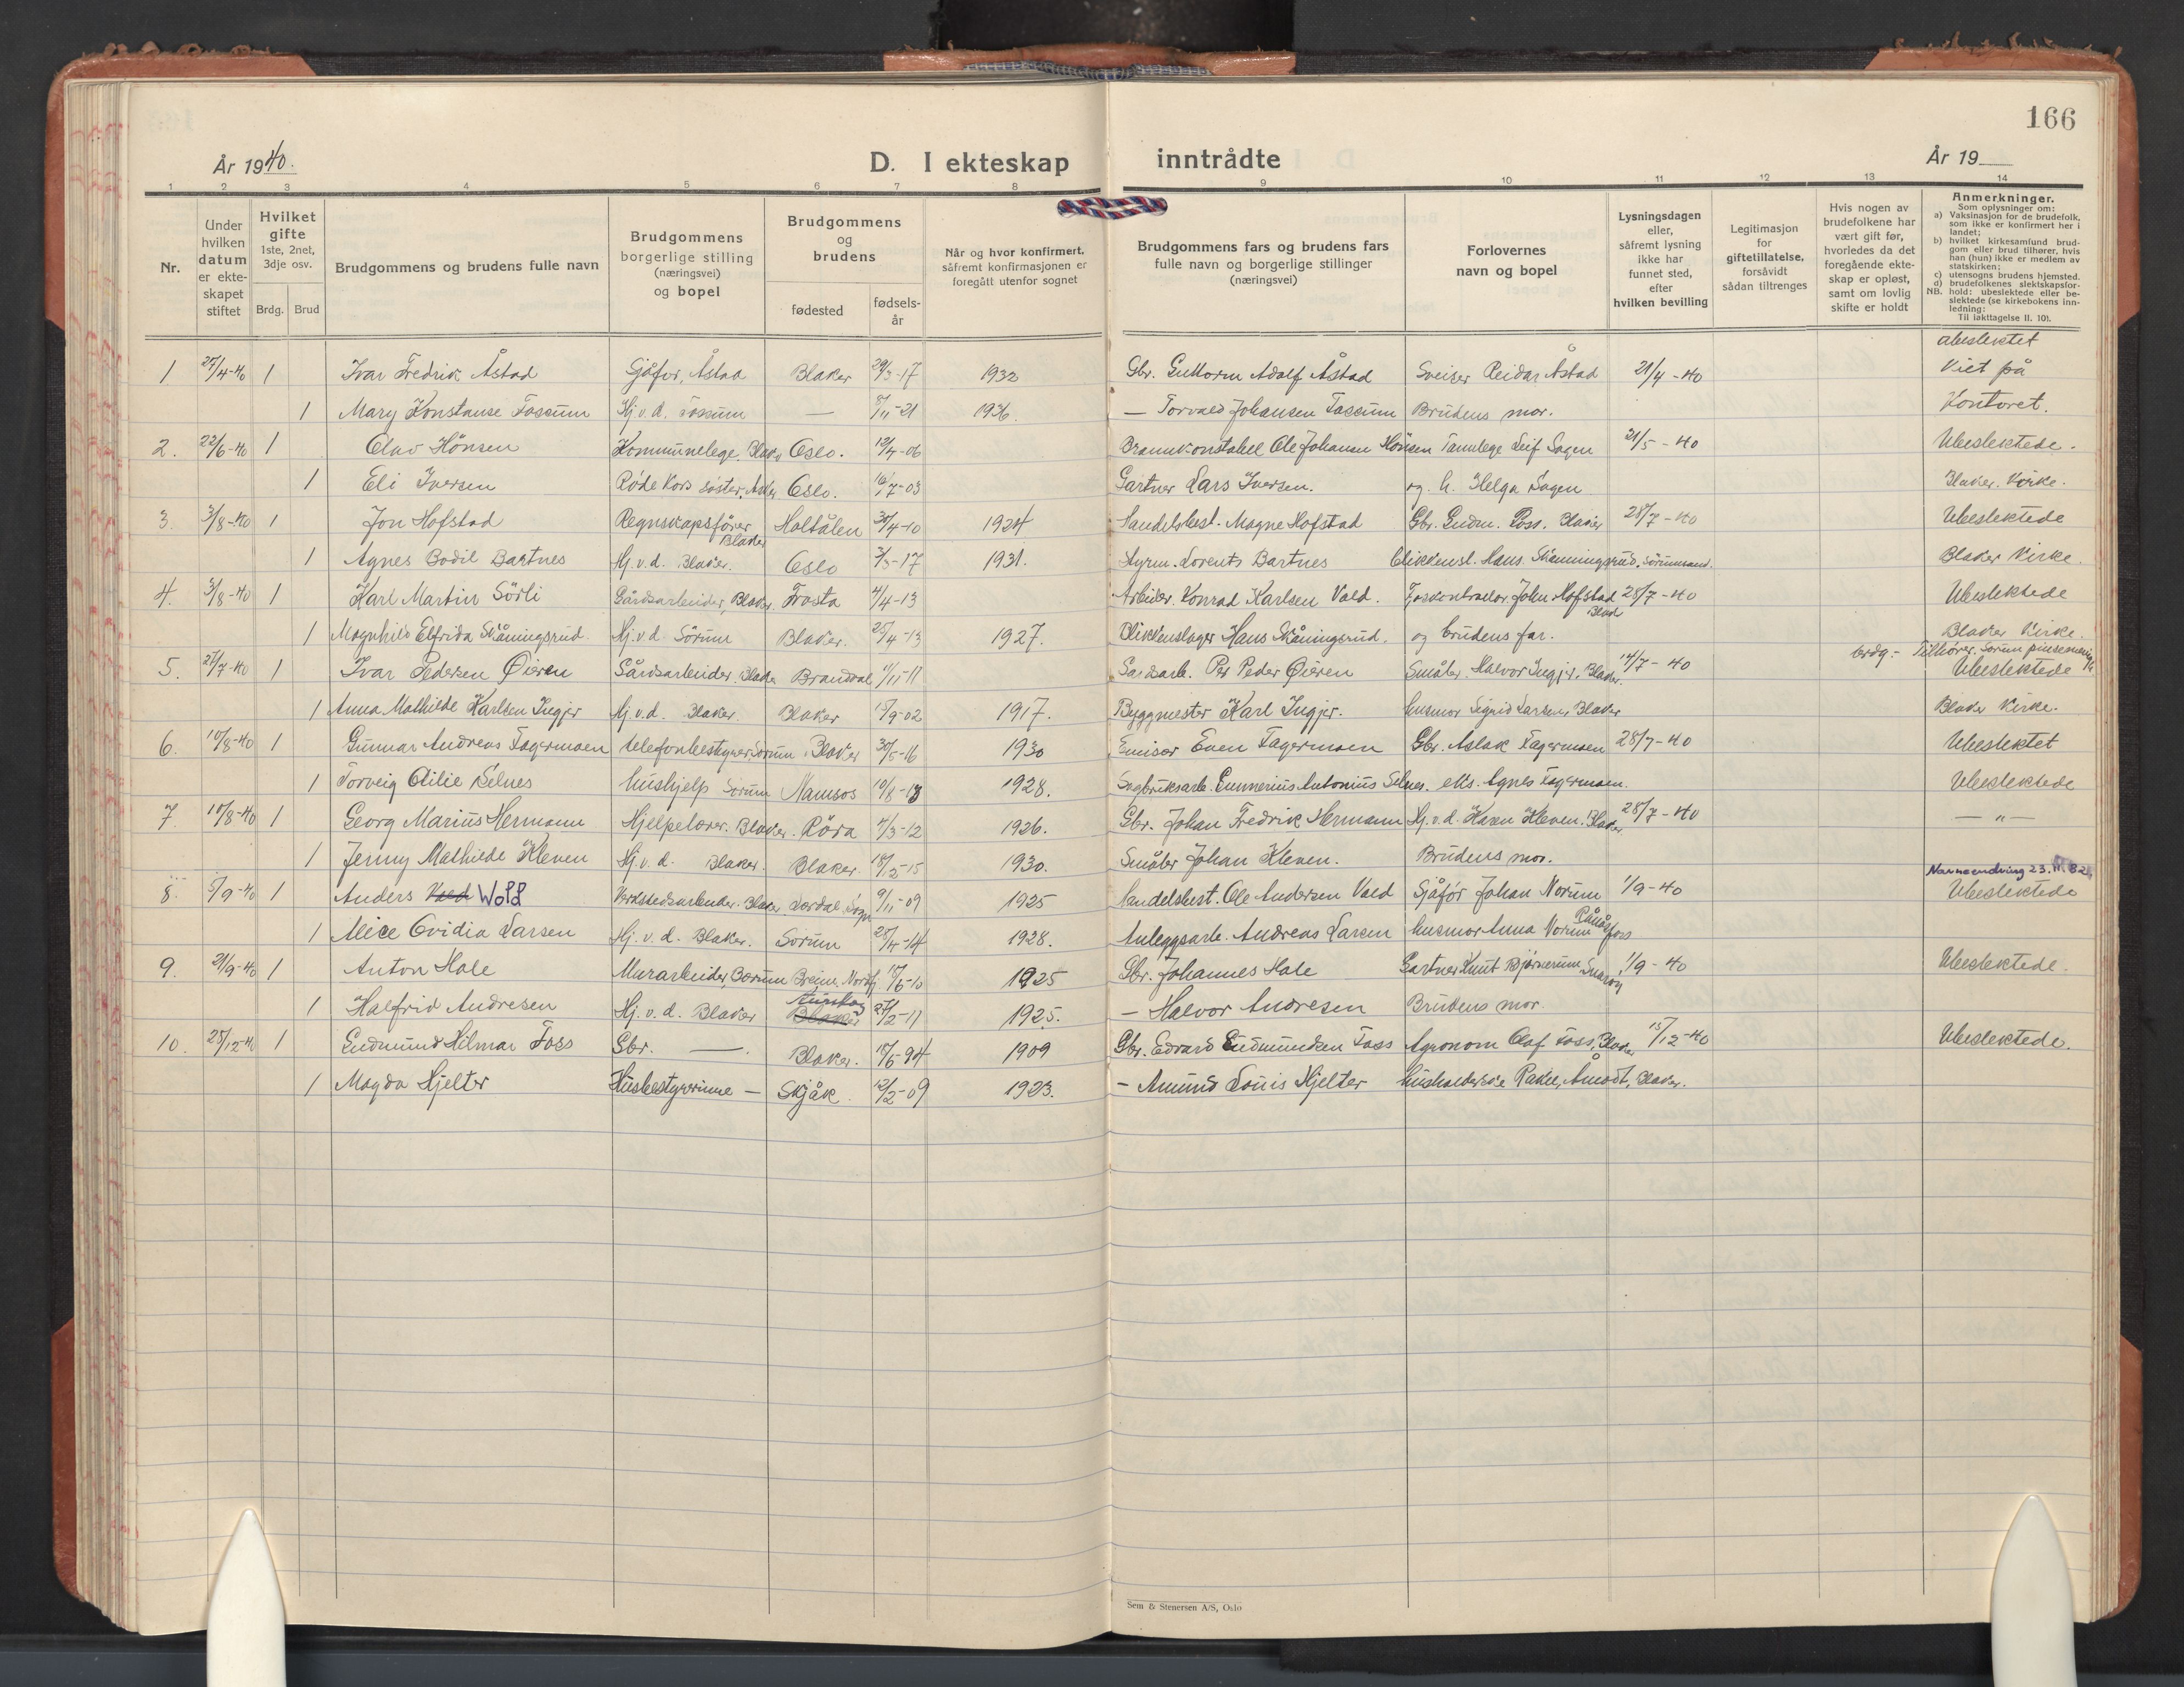 166
År 1940.
D. I ekteskap inntrådte
År 19
1 2 3 4 5 6 7 8 9 10 11 12 13 14
Nr.
Under hvilken datum er ekte-skapet stiftet
Hvilket gifte 1ste, 2net, 3dje osv.
Brdg. Brud
Brudgommens og brudens fulle navn
Brudgommens borgerlige stilling (næringsvei) og bopel
Brudgommens og brudens
fødested
fødsels-år
Når og hvor konfirmert, såfremt konfirmasjonen er foregått utenfor sognet
Brudgommens fars og brudens fars fulle navn og borgerlige stillinger (næringsvei)
Forlovernes navn og bopel
Lysningsdagen eller, såfremt lysning ikke har funnet sted, efter hvilken bevilling
Legitimasjon for giftetillatelse, forsåvidt sådan tiltrenges
Hvis nogen av brudefolkene har vært gift før, hvorledes da det foregående ekte-skap er opløst, samt om lovlig skifte er holdt
Anmerkninger.
Som oplysninger om:
a) Vaksinasjon for de brudefolk, som ikke er konfirmert her i landet;
b) hvilket kirkesamfund brud-gom eller brud tilhører, hvis han (hun) ikke er medlem av statskirken;
c) utensogns brudens hjemsted.
d) brudefolkenes slektskapsfor-hold: ubeslektede eller be-slektede (se kirkebokens inn-ledning:
NB.
Til iakttagelse II. 10).
1 27/4-40 1 Ivar Fredrik Åstad Sjåfør, Åstad Blaker 29/3-17 1932 Gbr. Guttorm Adolf Åstad Sveiser Reidar Åstad 21/4-40 ubeslektet Viet på
1 Mary Konstanse Fossum Hj.v.d. Fossum — 5/11-21 1936. — Torvald Johansen Fossum Brudens mor. Kontoret.
2. 22/6-40 1 Olav Hönsen Kommunelege. Blaker Oslo. 19/4-06 Brannkonstabel Ole Johansen Hönsen Tannlege Leif Sagen 21/5-40 Ubeslektede.
1 Eli Iversen Røde Kors søster, Asker Oslo. 16/7-03 Gartner Lars Iversen. og h. Helga Sagen Blaker Kirke.
3. 3/8-40 1 Jon Hofstad Regnskapsfører Blaker Haltålen 30/4-10 1924 Handelsbest. Magne Hofstad Gbr. Gudm. Foss. Blaker 28/7-40 Ubeslektede
1 Agnes Bodil Bartnes Hj.v.d. Blaker. Oslo 3/3-17 1931. Styrm. Lorents Bartnes Blikkensl. Hans Skåningsrud. Sørumsand. Blaker Kirke.
4. 3/8-40 1 Karl Martin Sörli Gårdsarbeider, Blaker. Frosta 4/4-13 Arbeider. Konrad Karlsen Vold. John Hofstad Blaker 28/7-40 Ubeslektede
1 Magnhild Elfrida Skåningsrud. Hj.v.d. Sörum Blaker. 25/4-13 1927. Blikkenslager Hans Skåningsrud. og brudens far. Blaker Kirke.
5. 27/7-40 1 Ivar Pedersen Øieren Gårdsarbeider. Blaker Brandval 11/11-11 Gårdsarb. Per Peder Øieren Småbr. Halvor Ingjer. Blaker. 14/7-40 brdg.- Tilhører Sørum pinsemenigh. Ubeslektede
1 Anna Mathilde Karlsen Ingjer Hj.v.d. Blaker. Blaker 15/9-02 1917. Byggmester Karl Ingjer. husmor Sigrid Larsen, Blaker Blaker Kirke.
6. 10/8-40 1 Gunnar Andreas Fagermoen telefonbestyrer, Sørum Blaker 30/5-16 1930 Emisær Even Fagermoen Gbr. Aslak Fagermoen 28/7-40 Ubeslektet
1 Torveig Otilie Selnes hushjelp Sørum Namsos 10/8-13 1928. Sagbruksarb. Emmerius Antonius Selnes. ekts. Agnes Fagermoen. Ubeslektede
7. 10/8-40 1 Georg Marius Hermann Hjelpelærer. Blaker. Röra 4/3-12 1926. Gbr. Johan Fredrik Hermann Hj.v.d. Karen Kleven. Blaker. 28/7-40 — " —
1 Jenny Mathilde Kleven Hj.v.d. Blaker. Blaker. 18/12-15 1930. Småbr Johan Kleven. Brudens mor.
8. 5/9-40 1 Anders Vold Wold Verkstedsarbeider. Blaker Lærdal, Sogn 9/11-09 1925 Handelsbest. Ole Andersen Vold Sjåfør Johan Norum 1/9-40 Navneendring Ubeslektede
1 Alice Ovidia Larsen Hj.v.d. Blaker. Sørum 28/4-14 1928. Anleggsarb. Andreas Larsen husmor Anna Norum Rånåsfoss
9. 21/9-40 1 Anton Hole Murarbeider, Bærum Breim, Nordfj. 15/6-10 1925 Gbr. Johannes Hole Gartner Knut Bjørnerum Snarøy 1/9-40 Ubeslektede.
1 Halfrid Andresen Hj.v.d. Blaker Aurskog Blaker 27/2-11 1925. — Halvor Andresen Brudens mor.
10. 28/12-40 1 Gudmund Hilmar Foss Gbr. — Blaker. 15/5-94 1909 Gbr. Edvard Gudmundsen Foss Agronom Olaf Foss, Blaker 15/12-40 Ubeslektede.
1 Magda Hjelter Husbestyrerinne — Skjåk. 12/2-09 1923. — Amund Louis Hjelter husholderske Rakel Åmodt, Blaker.
Sem & Stenersen A/S, Oslo